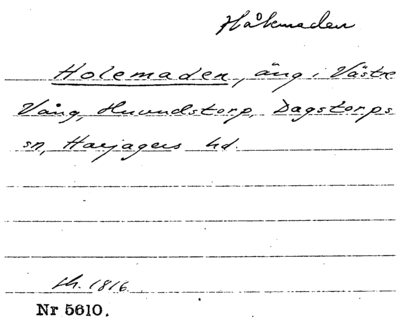 Håkmaden
Holemaden, äng i Västre
Vång, Huvudstorp, Dagstorps
sn, Harjagers hd.
1816
Nr 5610.